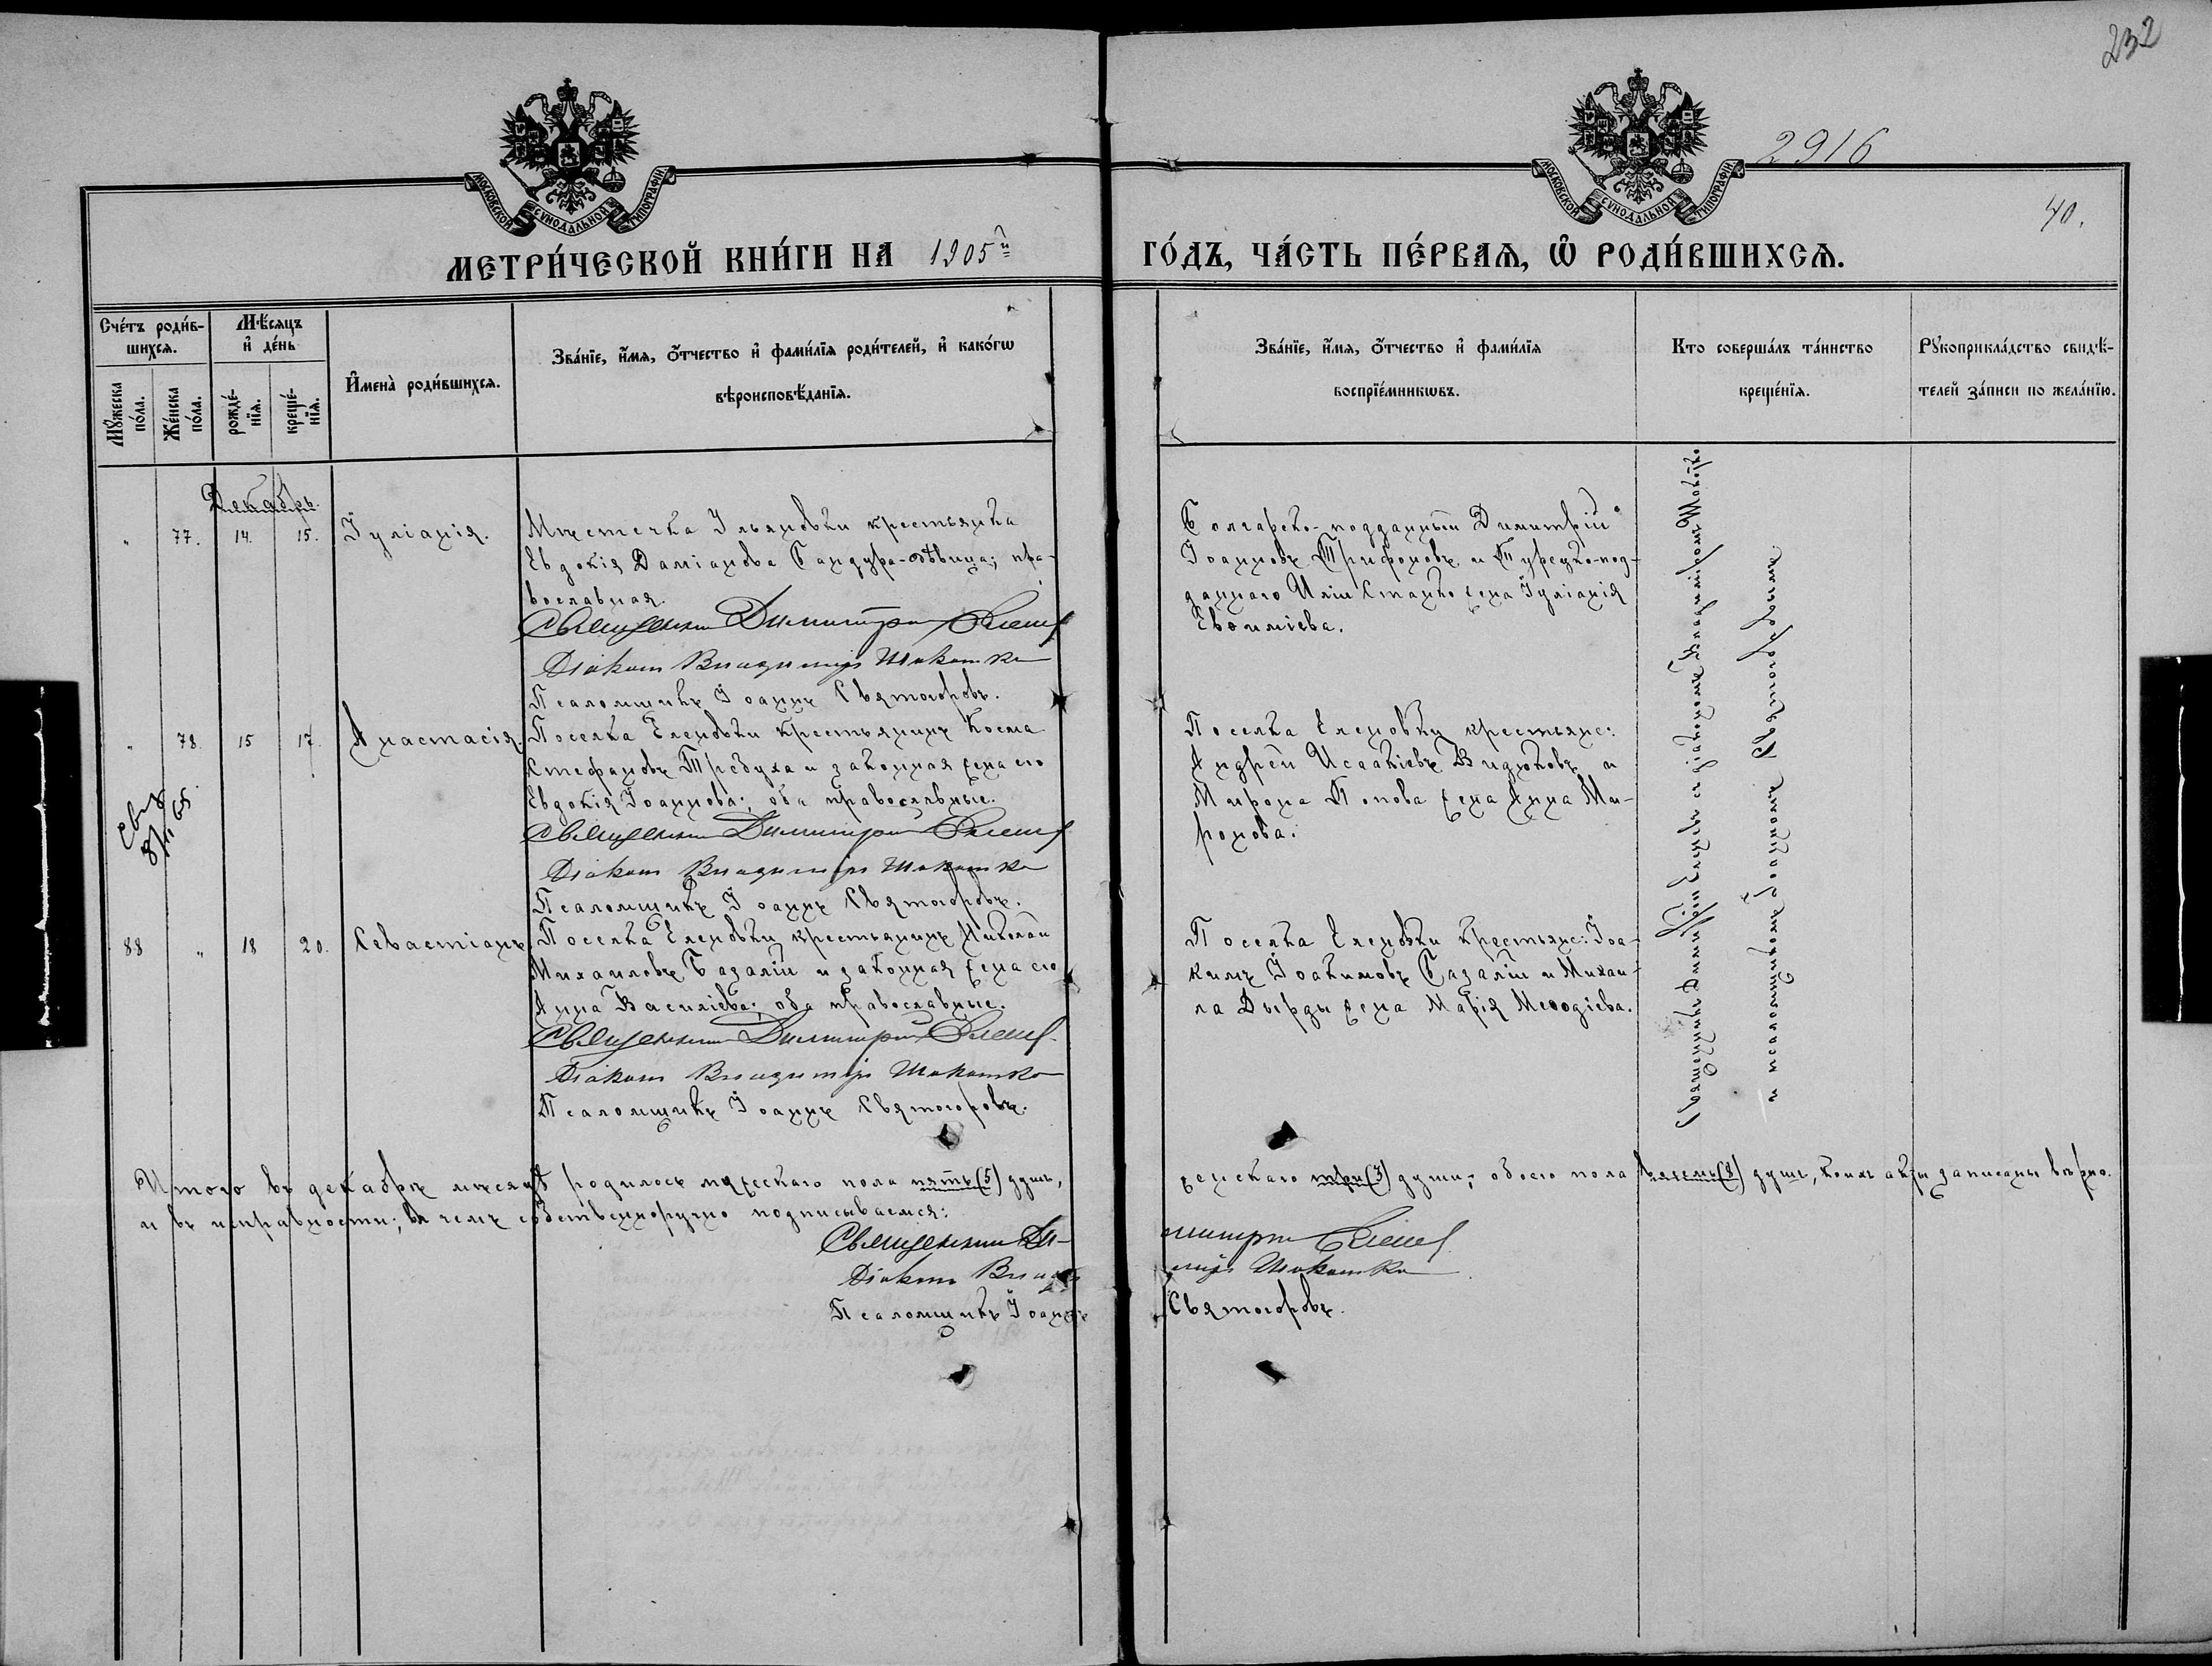 232
2916
40.
МОСКОВСКОЙ СѴНОДАЛЬНОЙ ТИПОГРАФІИ
МОСКОВСКОЙ СѴНОДАЛЬНОЙ ТИПОГРАФІИ
МЕТРИ́ЧЕСКОЙ КНИ́ГИ НА 1905й ГО́ДЪ, ЧА́СТЬ ПЕ́РВАѦ, Ѡ҆ РОДИ́ВШИХСѦ.
Сче́тъ роди́в-
шихсѧ.
Мꙋ́жеска
по́ла.
Же́нска
по́ла.
Мѣ́сѧцъ
и҆ де́нь
рожде́-
нїѧ.
креще́-
нїѧ.
И҆мена̀ роди́вшихсѧ.
Зва́нїе, и҆́мѧ, ѻ҆́тчество и҆ фами́лїѧ роди́телей, и҆ како́гѡ
вѣроисповѣ́данїѧ.
Зва́нїе, и҆́мѧ, ѻ҆́тчество и҆ фами́лїѧ
воспрїе́мникѡвъ.
Кто соверша́лъ та́инство
креще́нїѧ.
Рꙋкоприкла́дство свидѣ́-
телей за́писи по жела́нїю.
Декабрь.
" 77. 14. 15. Іуліанія.
Мѣстечка Ульяновки крестьянка
Евдокія Даміанова Бандура-дѣвица; пра-
вославная.
Священникъ Димитрій Еленевъ
Діаконъ Владиміръ Шокотко
Псаломщикъ Іоаннъ Святогоровъ.
Болгарско-подданный Димитрій
Іоанновъ Трифоновъ и Турецко-под-
даннаго Иліи Станко жена Іуліанія
Евѳиміева.
" 78. 15 17. Анастасія.
Поселка Еленовки крестьянинъ Косма
Стефановъ Требуха и законная жена его
Евдокія Іоаннова; оба православные.
Священникъ Димитрій Еленевъ
Діаконъ Владиміръ Шокотко
Псаломщикъ Іоаннъ Святогоровъ.
Поселка Еленовки крестьяне:
Андрей Исаакіевъ Видюковъ и
Мирона Попова жена Анна Ми-
ронова.
88 " 18 20. Севастіанъ.
Поселка Еленовки крестьянинъ Николай
Михаиловъ Базалій и законная жена его
Анна Василіева; оба православные.
Священникъ Димитрій Еленевъ
Діаконъ Владиміръ Шокотко
Псаломщикъ Іоаннъ Святогоровъ.
Поселка Еленовки крестьяне: Іоа-
кимъ Іоакимовъ Базалій и Михаи-
ла Дырды жена Марія Меѳодіева.
Священникъ Димитрій Еленевъ съ діакономъ Владиміромъ Шокотко
и псаломщикомъ Іоанномъ Святогоровымъ
Итого въ декабрѣ мѣсяцѣ родилось мужескаго пола пять (5) душъ, женскаго три (3) души, обоего пола восемь (8) душъ, коихъ акты записаны вѣрно
и въ исправности; въ чемъ собственноручно подписываемся:
Священникъ Димитрій Еленевъ
Діаконъ Владиміръ Шокотко
Псаломщикъ Іоаннъ Святогоровъ.